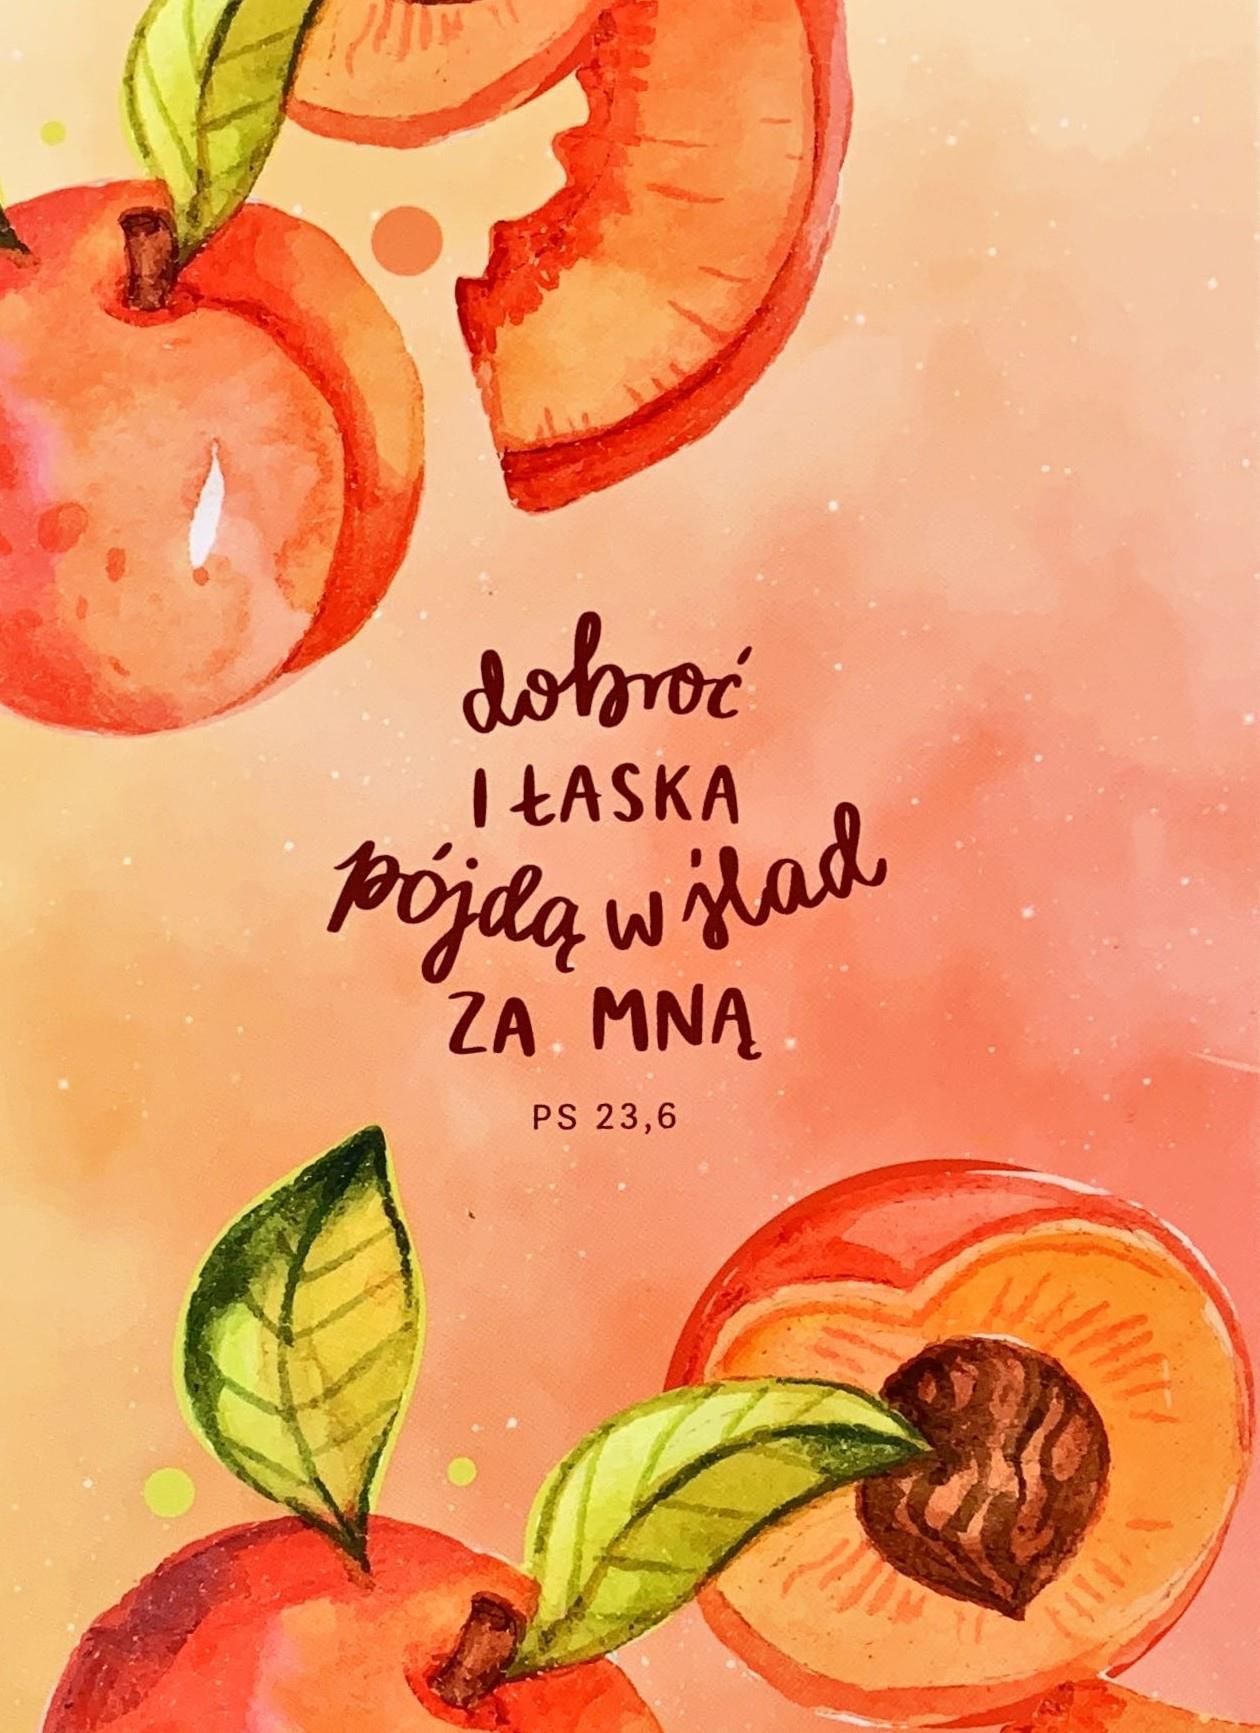 dobroć
I ŁASKA
pójdą w ślad
ZA MNĄ
PS 23,6